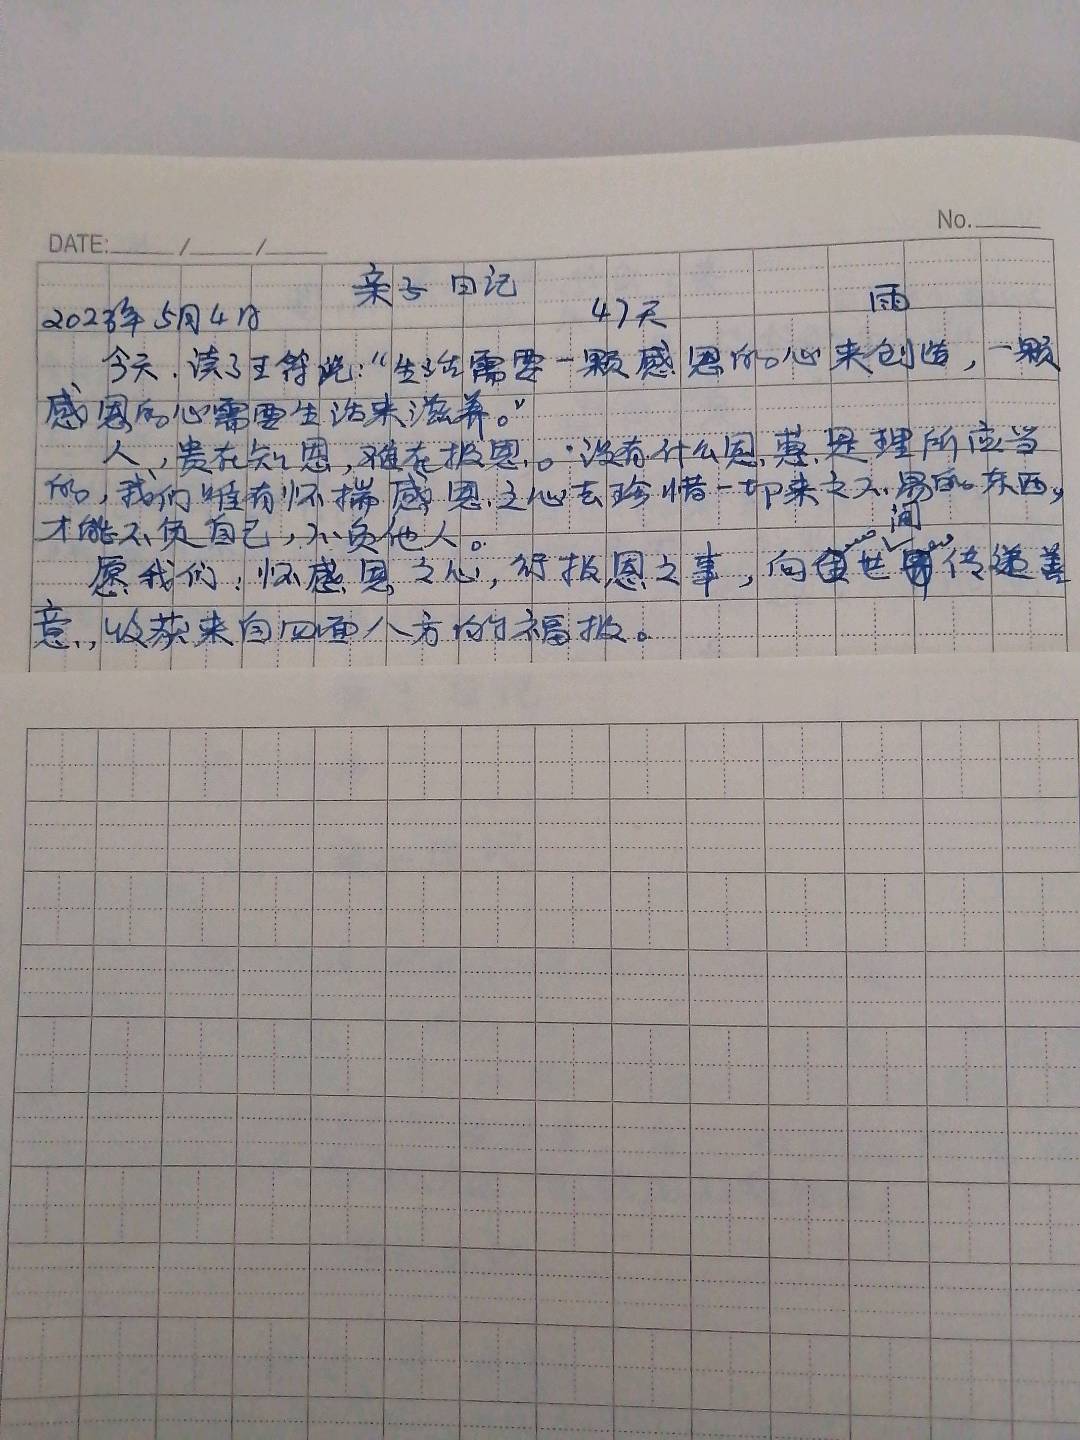 No.
DATE: / /
亲子日记
2023年5月4日 47天 雨
今天.读了王符说:“生活需要一颗感恩的心来创造,一颗
感恩的心需要生活来滋养。”
人,贵在知恩,难在报恩。没有什么恩惠是理所应当
的,我们唯有怀揣感恩之心去珍惜一切来之不易的东西,
才能不负自己,不负他人。
愿我们,怀感恩之心,行报恩之事,向世间传递善
意,收获来自四面八方的福报。